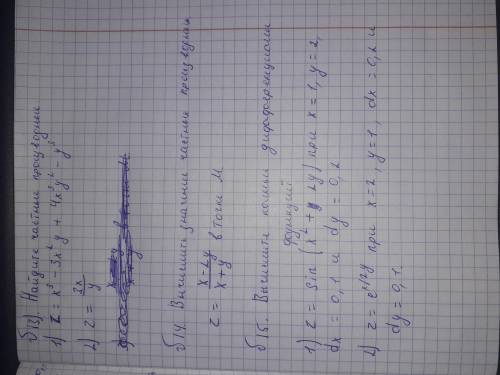 б)3). Найдите частные производные
1) z = x³ - 3x²y + 4x³y² - y⁵
2) z = 3x/y
б)4. Вычислить значения частных производных
z = (x-2y)/(x+y) в точке M.
б)5. Вычислите полные дифференциалы
функций
1) z = sin(x² + 2y) при x = 1, y = 2,
dx = 0,1 и dy = 0,2
2) z = e^(x+2y) при x = 2, y = 1, dx = 0,2 и
dy = 0,1.